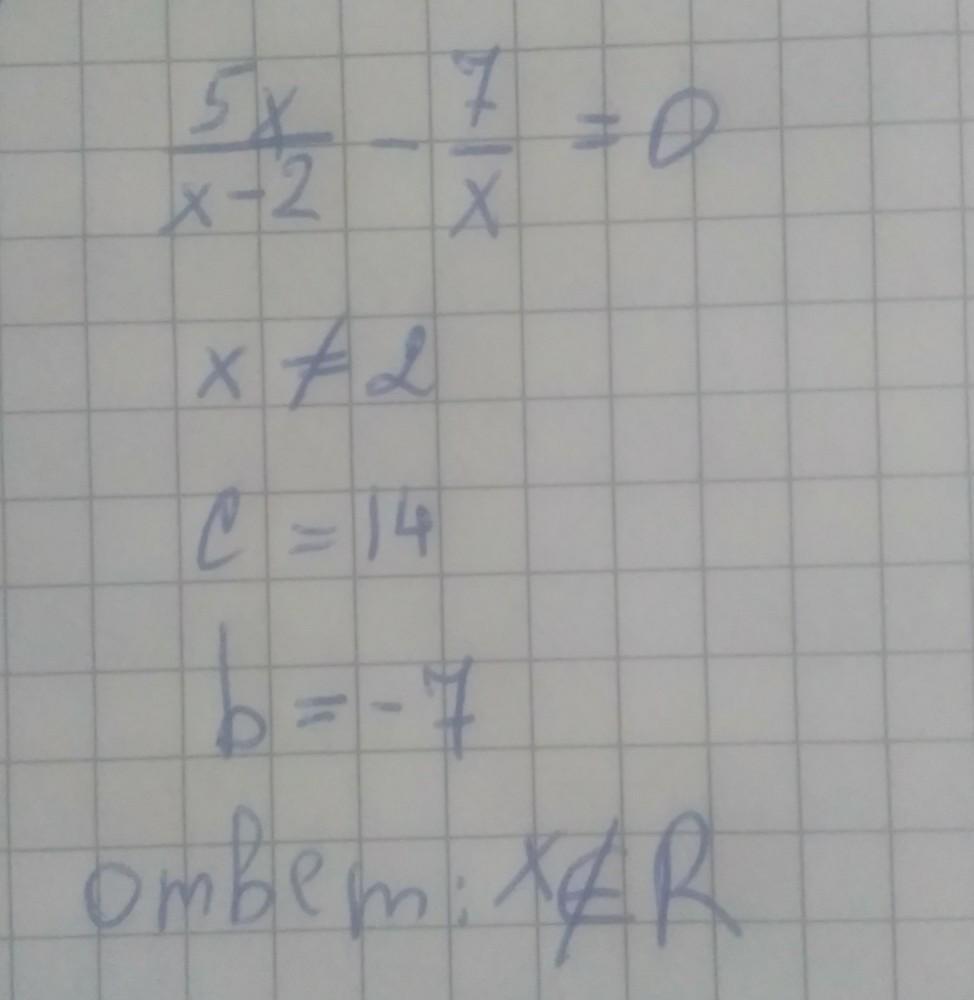 5x/(x-2) - 7/x = 0
x ≠ 2
c = 14
b = -7
ответ: x∉R